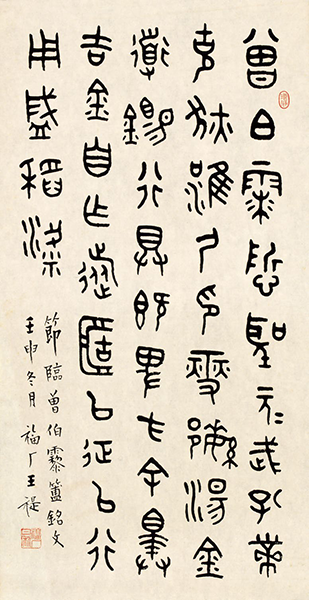 曾白霥悊聖元武孔黹
克狄淮尸印燮繁湯金
道錫行具既卑方余睪
吉金自乍旅𠤳㠯征㠯行
用盛稻粱
節臨曾伯霥簠銘文
壬申冬月福厂王禔